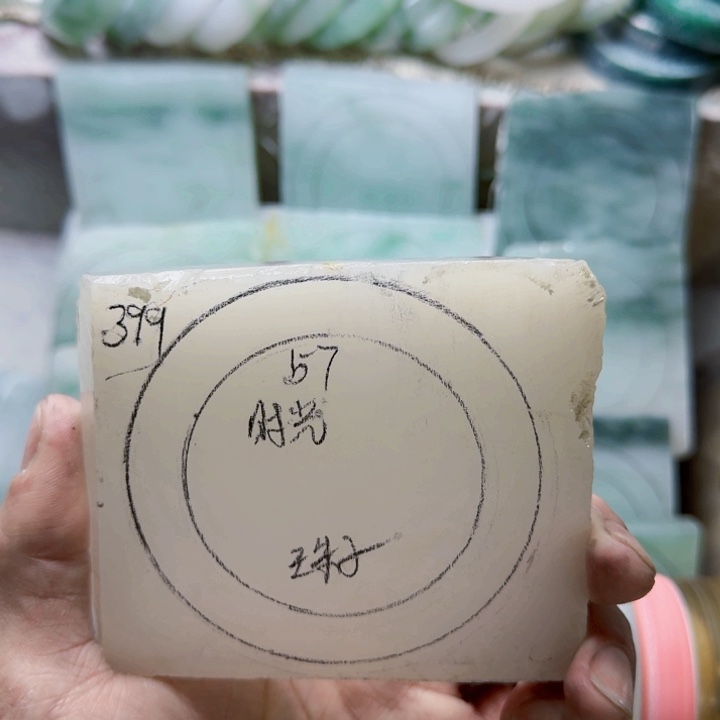 399
57
时光
珠子